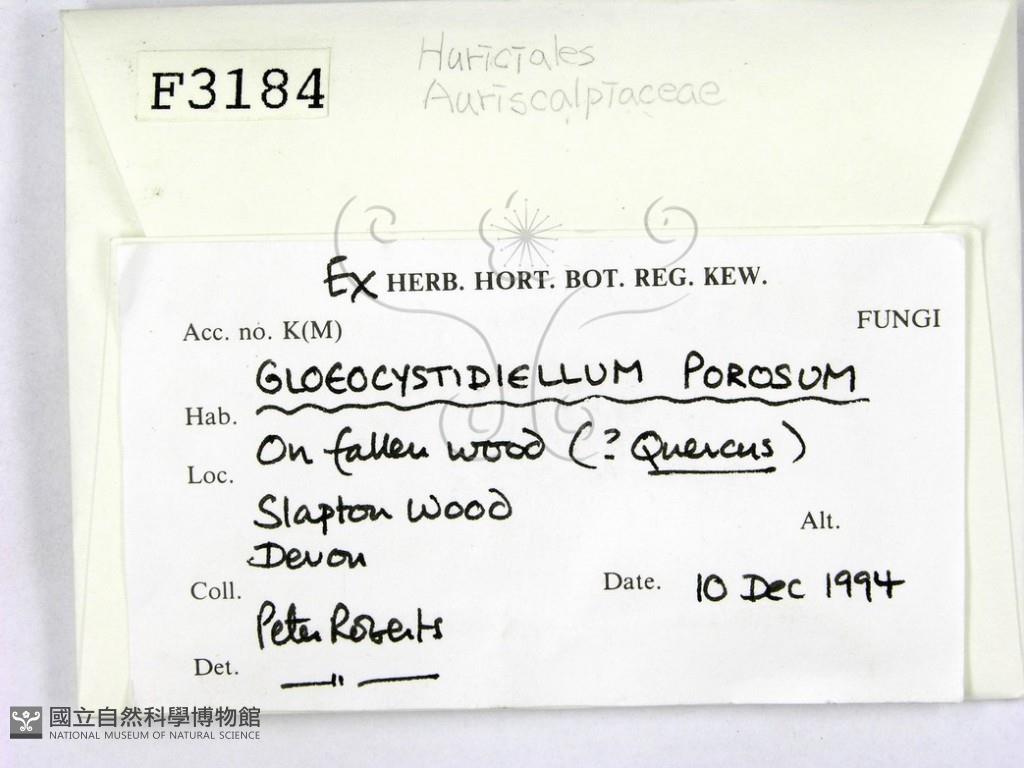 F3184
Huriciales
Auriscalpiaceae
Ex HERB. HORT. BOT. REG. KEW.
Acc. no. K(M)
FUNGI
GLOEOCYSTIDIELLUM POROSUM
Hab.
On fallen wood (? Quercus)
Loc.
Slapton Wood
Alt.
Devon
Coll.
Date. 10 Dec 1994
Peter Roberts
Det.
—— " ——
國立自然科學博物館
NATIONAL MUSEUM OF NATURAL SCIENCE